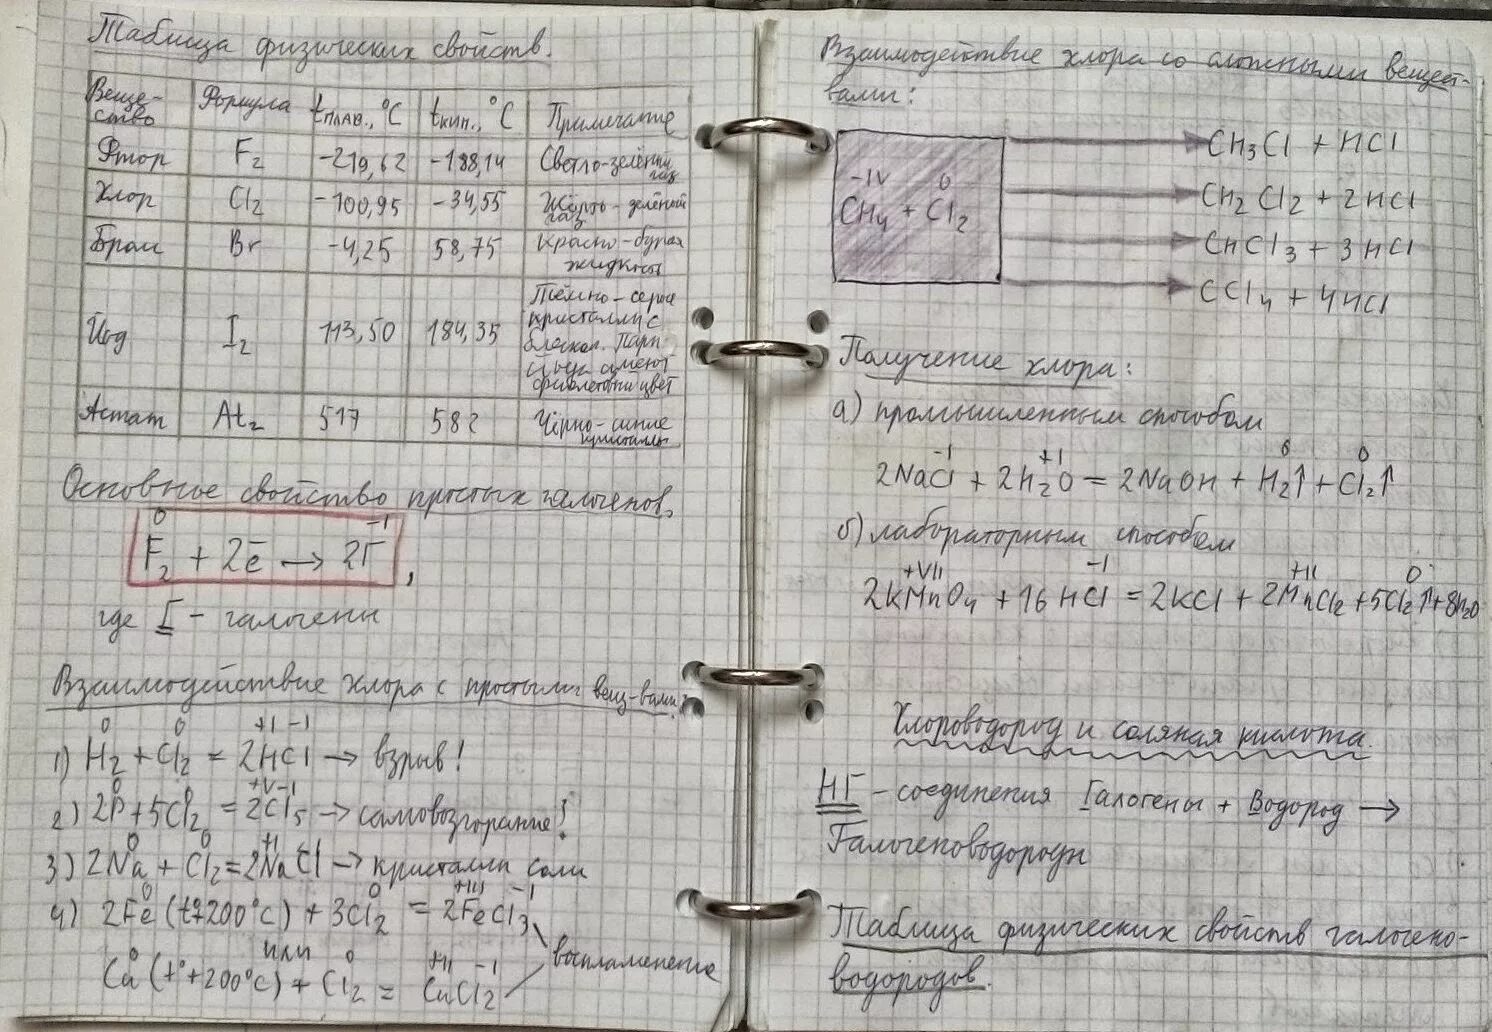 Таблица физических свойств.
Веще-
ство
Формула
tплав., °C
tкип., °C
Примечание
Фтор
F₂
-219,62
-188,14
Светло-зелёный
газ
Хлор
Cl₂
-100,95
-34,55
Жёлто-зелёный
газ
Бром
Br
-4,25
58,75
Красно-бурая
жидкость
Йод
I₂
113,50
184,35
Тёмно-серые
кристаллы с
блеском. Пары
йода имеют
фиолетовый цвет
Астат
At₂
517
582
Чёрно-синие
кристаллы
Основное свойство простых галогенов.
0 -1
F₂ + 2ē → 2Г ,
где Г - галогены
Взаимодействие хлора с простыми вещ-вами:
0 0 +I -I
1) H₂ + Cl₂ = 2HCl → взрыв!
0 0 +V -I
2) 2P + 5Cl₂ = 2Cl₅ → самовозгорание!
0 0 +I
3) 2Na + Cl₂ = 2NaCl → кристаллы соли
0 0 +III -1
4) 2Fe (t°+200°C) + 3Cl₂ = 2FeCl₃
или
воспламенение
0 0 +II -1
Cu (t°+200°C) + Cl₂ = CuCl₂
Взаимодействие хлора со сложными вещест-
вами:
-IV 0
CH₄ + Cl₂
CH₃Cl + HCl
CH₂Cl₂ + 2HCl
CHCl₃ + 3HCl
CCl₄ + 4HCl
Получение хлора:
а) промышленным способом
-1 +1 0 0
2NaCl + 2H₂O = 2NaOH + H₂↑ + Cl₂↑
б) лабораторным способом
+VII -1 +II 0
2KMnO₄ + 16HCl = 2KCl + 2MnCl₂ + 5Cl₂↑ + 8H₂O
Хлороводород и соляная кислота.
НГ - соединения Галогены + Водород →
Галогеноводороды
Таблица физических свойств галогено-
водородов.